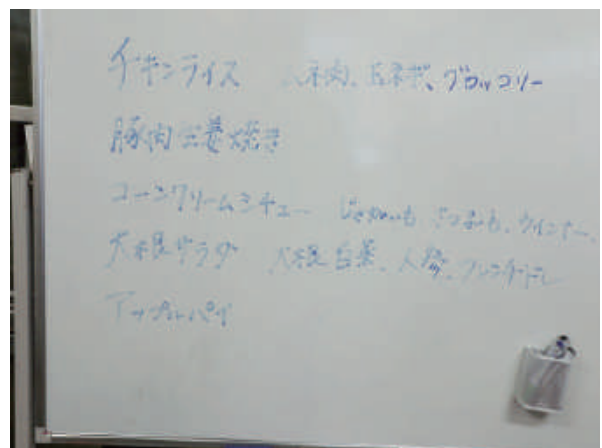 チキンライス 玉ネギ、ブロッコリー
豚肉生姜焼き
コーンクリームシチュー じゃがいも さつまいも、ウインナー、
大根サラダ 大根 白菜、人参、フレンチドレ
アップルパイ